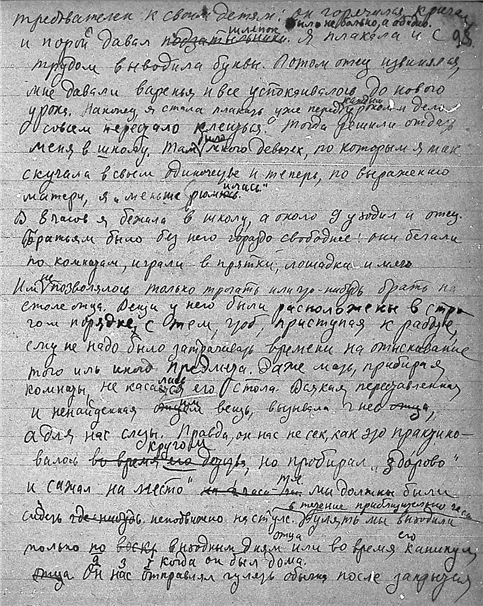 требователен к своим детям: он горячился, кричал
было не больно, а обидно.
и порой давал подзатыльники шлепок. Я плакала и с 98.
трудом выводила буквы. Потом отец извинялся,
мне давали варенья и все успокаивалось до нового
урока. Наконец я стала плакать уже перед каждым уроком и дело
совсем перестало клеиться. Тогда решили отдать
меня в школу. Там было много девочек, по которым я так
скучала в своем одиночестве и теперь, по выражению
матери, я "меньше рюмилась"
В 8 часов я бежала в школу, а около 9 уходил и отец.
Братьям было без него гораздо свободнее: они бегали
по комнатам, играли в прятки, лошадки и мяч.
Им не позволялось только трогать или что-нибудь брать на
столе отца. Вещи у него были расположены в стро-
гом порядке, с тем, чтоб, приступая к работе,
ему не надо было затрачивать времени на отыскивание
того иль иного предмета. Даже мать, прибирая
комнаты, не касалась его стола. Всякая переставленная
и ненайденная им вещь, вызывала гнев отца,
а для нас слезы. Правда, он нас не сек, как это практико-
валось кругом во время его детства, но пробирал "здорово"
и сажал на место" мы должны были
в течение приблизительно часа
сидеть где-нибудь неподвижно на стуле. Гулять мы выходили
только по воскр выходным дням отца или во время его каникул,
когда он был дома.
отца Он нас отправлял гулять обычно после закрытия